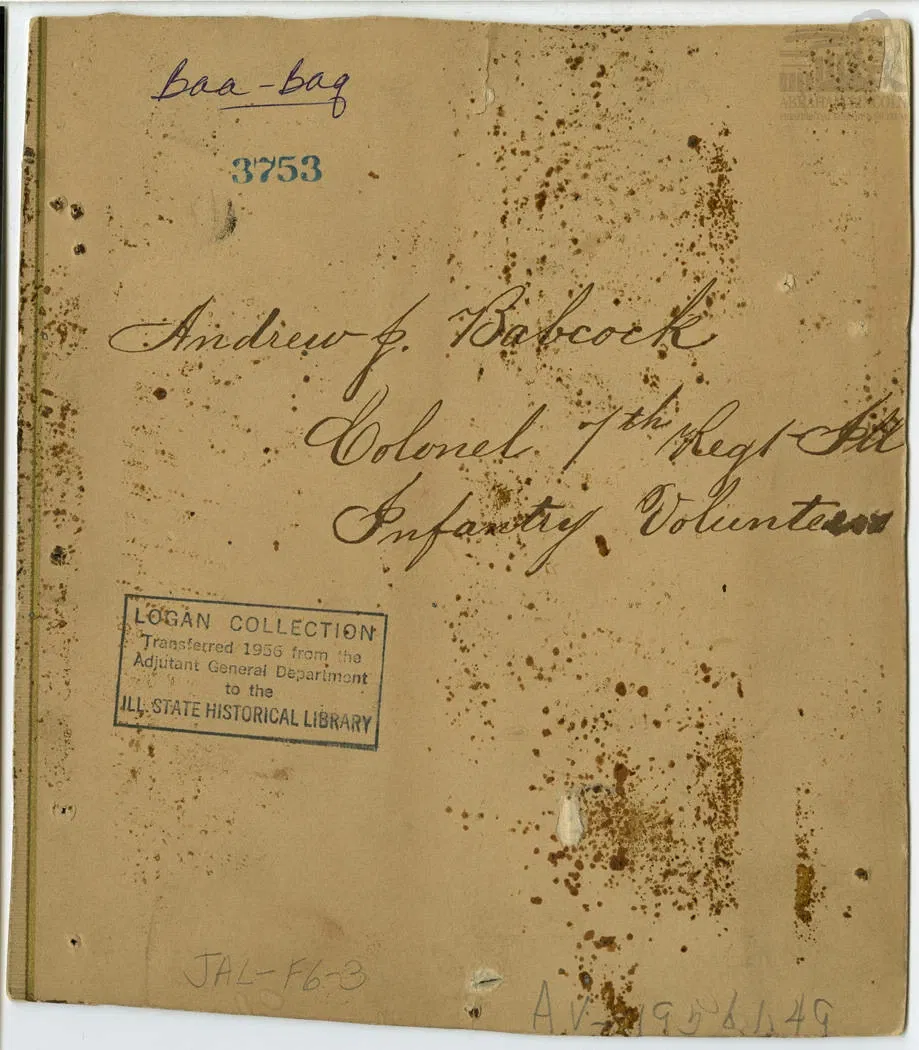 Baa-Baq
3753
Andrew J. Babcock
Colonel 7th Regt Ill
Infantry Volunteers
LOGAN COLLECTION
Transferred 1956 from the
Adjutant General Department
to the
ILL. STATE HISTORICAL LIBRARY
JAL-F6-3
AV-1956.1.49
ABRAHAM LINCOLN